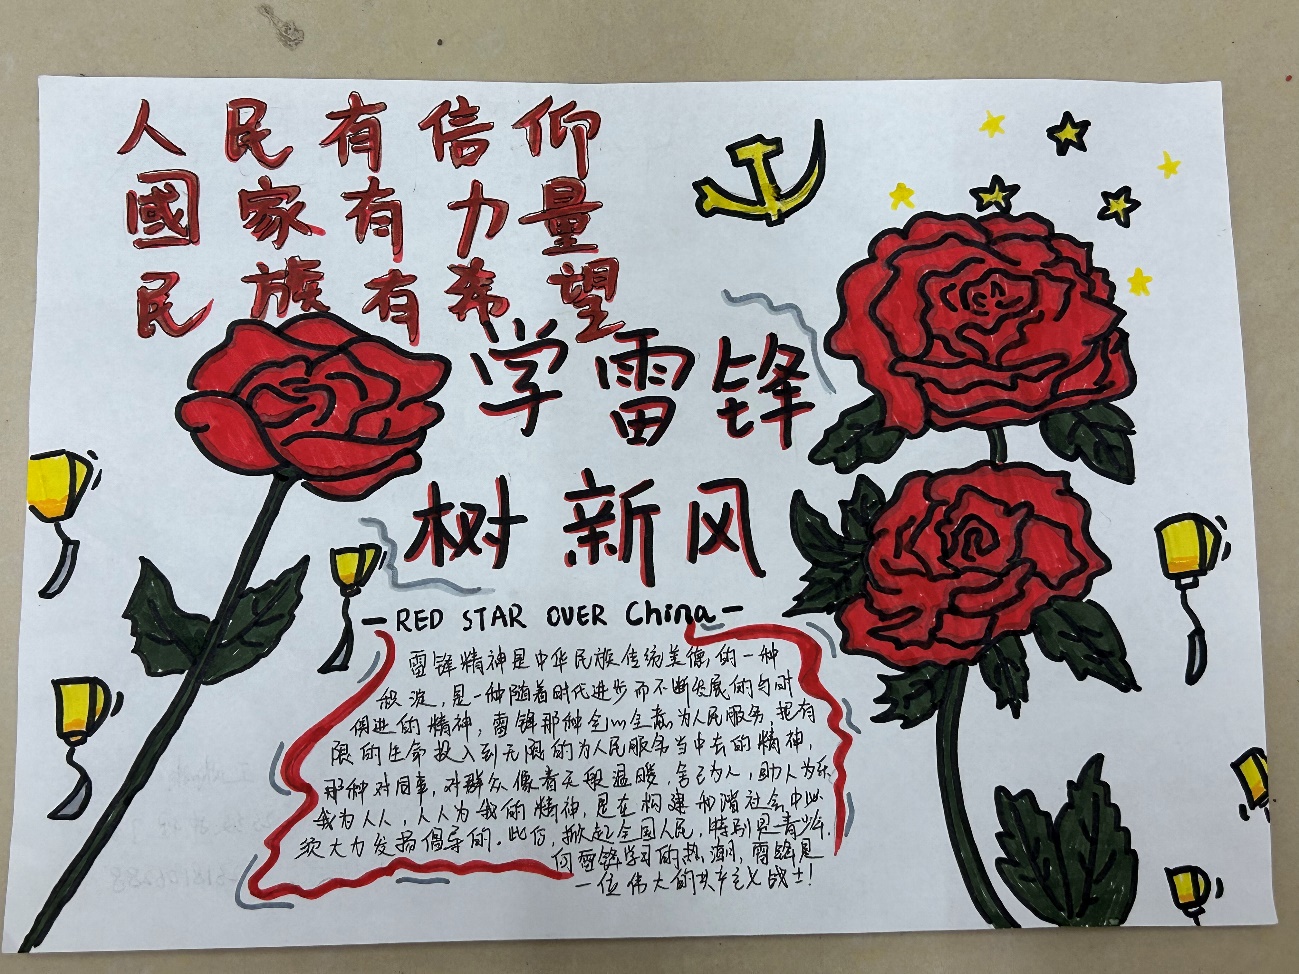 人民有信仰
國家有力量
民族有希望
学雷锋
树新风
-RED STAR OVER China-
雷锋精神是中华民族传统美德的一种
积淀,是一种随着时代进步而不断发展的与时
俱进的精神,雷锋那种全心全意为人民服务,把有
限的生命投入到无限的为人民服务当中去的精神,
那种对同事,对群众像春天般温暖,舍己为人,助人为乐
我为人人,人人为我的精神,是在构建和谐社会中必
须大力发扬倡导的.此后,掀起全国人民,特别是青少年,
向雷锋学习的热潮,雷锋是
一位伟大的共产主义战士!